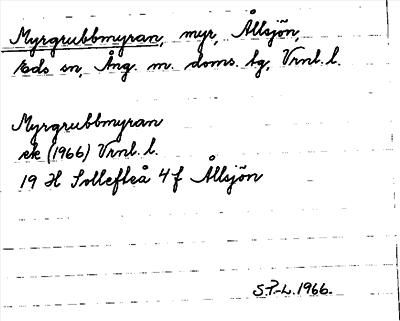 Myrgrubbmyran, myr, Ållsjön,
Eds sn, Ång. m. doms. bg, Vrnl. l.
Myrgrubbmyran
ek (1966) Vrnl. l.
19 H Sollefteå 4 f Ållsjön
S.P-L. 1966.